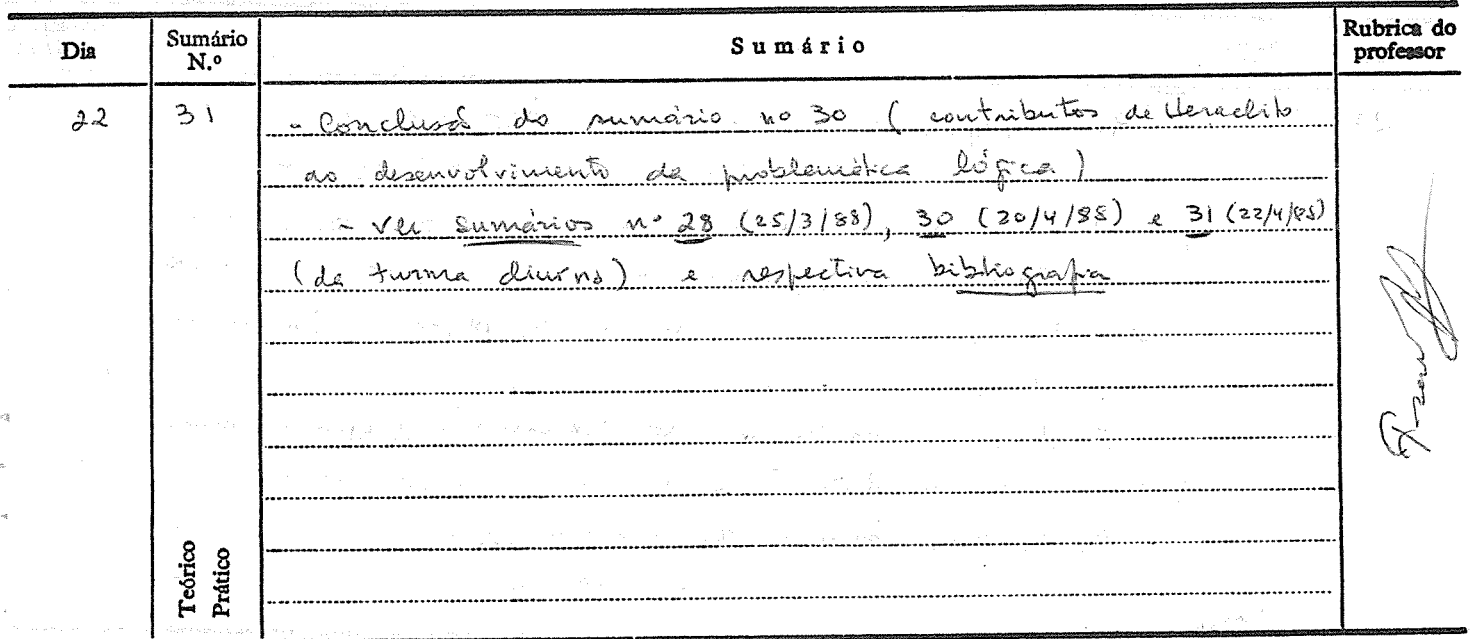 Dia
Sumário N.º
Sumário
Rubrica do professor
22
31
- Conclusão do sumário nº 30 (contributos de Heraclito
ao desenvolvimento da problemática lógica)
- Ver sumários nº 28 (25/3/88), 30 (20/4/88) e 31 (22/4/88)
(da turma diurna) e respectiva bibliografia
Teórico
Prático